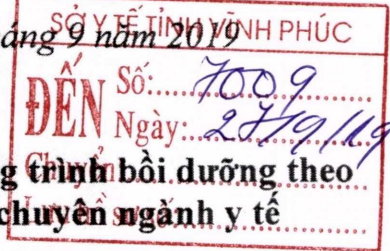 SỞ Y TẾ TỈNH VĨNH PHÚC
áng 9 năm 2019
ĐẾN Số: 7009
Ngày: 27/9/19
Chuyển
g trình bồi dưỡng theo
chuyên ngành y tế